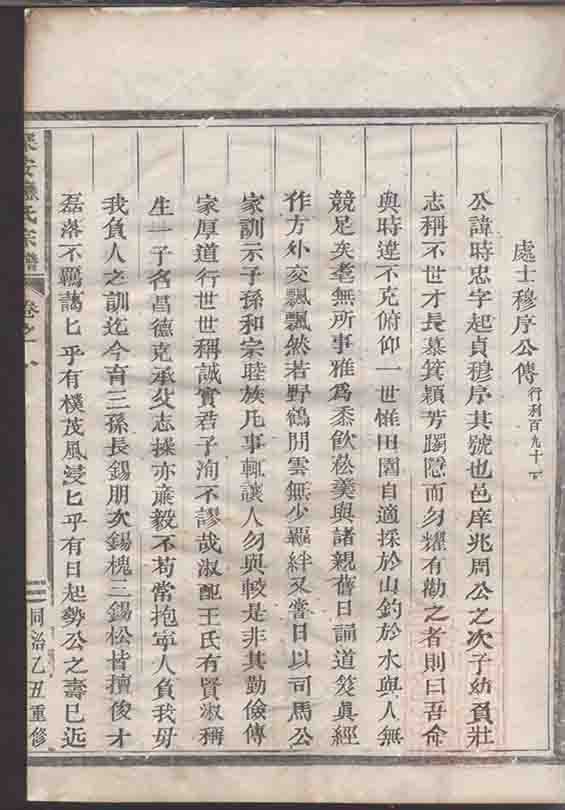 處士穆序公傳 行利百九十一
公諱時忠字起貞穆序其號也邑庠兆周公之次子幼負壯
志稱不世才長慕箕潁芳躅隠而勿耀有勸之者則曰吾命
與時違不克俯仰一世惟田園自適採於山釣於水與人無
競足矣耄無所事雅爲黍飲菘羮與諸親舊日誦道笈眞經
作方外交飄飄然若野鶴閒雲無少羈絆又嘗日以司馬公
家訓示子孫和宗睦族凡事輒讓人勿與較是非其勤儉傳
家厚道行世世稱誠實君子洵不謬哉淑配王氏有賢淑稱
生一子名昌德克承父志操亦廉毅不苟常抱寧人負我毋
我負人之訓迄今育三孫長錫朋次錫槐三錫松皆擅俊才
磊落不羈藹匕乎有樸茂風浸匕乎有日起勢公之壽已近
安應氏宗譜 卷之 同治乙丑重修